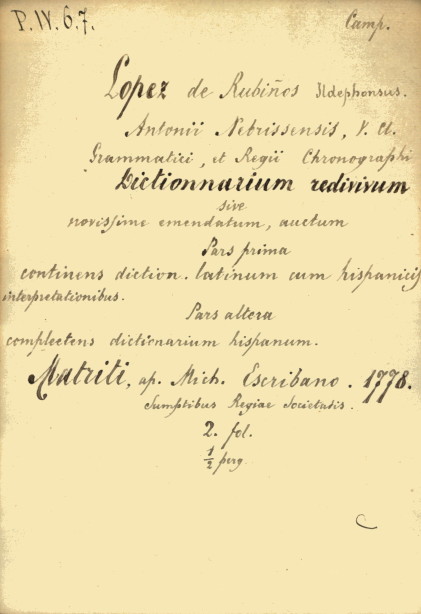 P. IV. 6. 7.
Camp.
Lopez de Rubiños Ildephonsus.
Antonii Nebrissensis, V. Cl.
Grammatici, et Regii Chronographi
Dictionnarium redivivum
sive
novissime emendatum, auctum
Pars prima
continens diction. latinum cum hispanicis
interpretationibus.
Pars altera
complectens dictionarium hispanum.
Matriti, ap. Mich. Escribano. 1778.
Sumptibus Regiae Societatis.
2. fol.
1/2 perg.